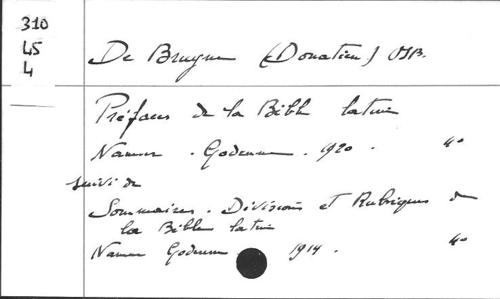 310
45
4
De Bruyne (Donatien) OSB.
Préfaces de la Bible latine
Namur. Godenne. 1920. 4o
suivi de
Sommaires. Divisions et Rubriques de
la Bible latine
Namur Godenne 1914. 4o